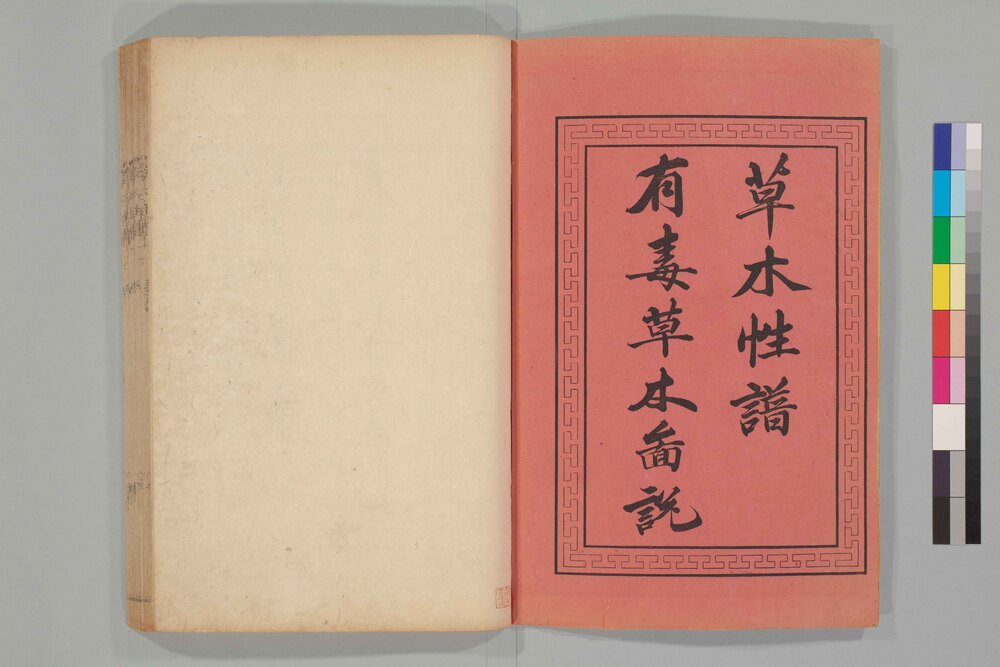 草木性譜
有毒草木圖説